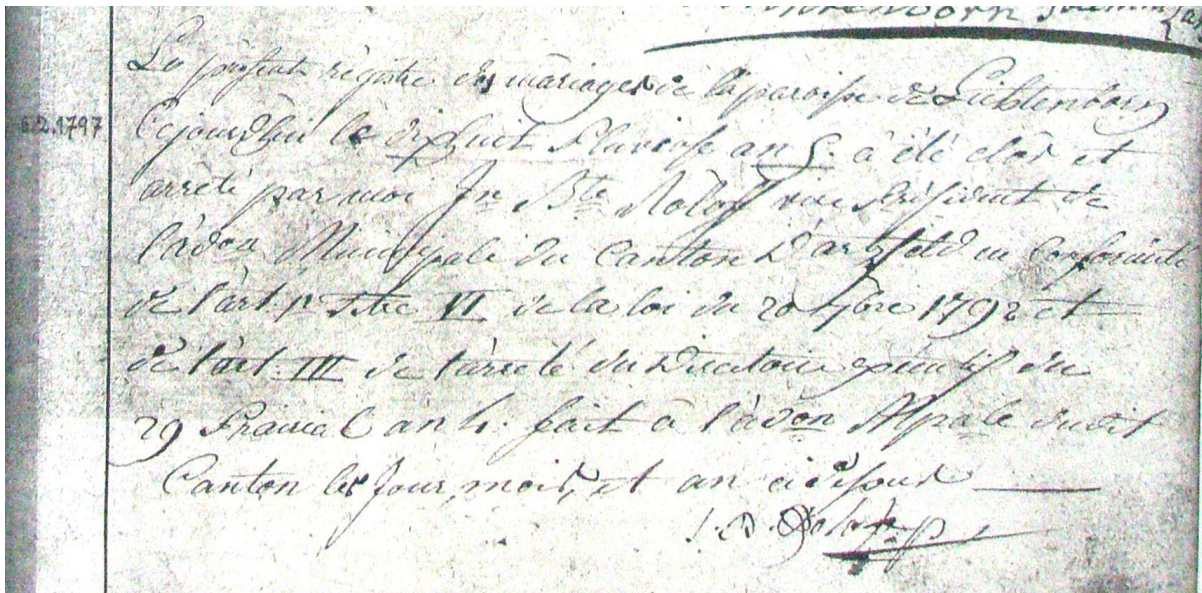 Le présent régistre des mariages de la paroisse de Lichtenborn
6.2.1797
Cejourdhui le dixhuit Pluviose an 5. à été clos et
arrèté par moi Jn Bte Roloff vice Président de
l'adon Municipale du Canton d'arzfeld en conformité
de l'art. 1r titre VI de la loi du 20 7bre 1792 et
de l'art. III de l'arrèté du Directoire exécutif du
29 Prairial an 4. fait à l'adon Mpale dudit
Canton les jour, mois, et an ci dessus